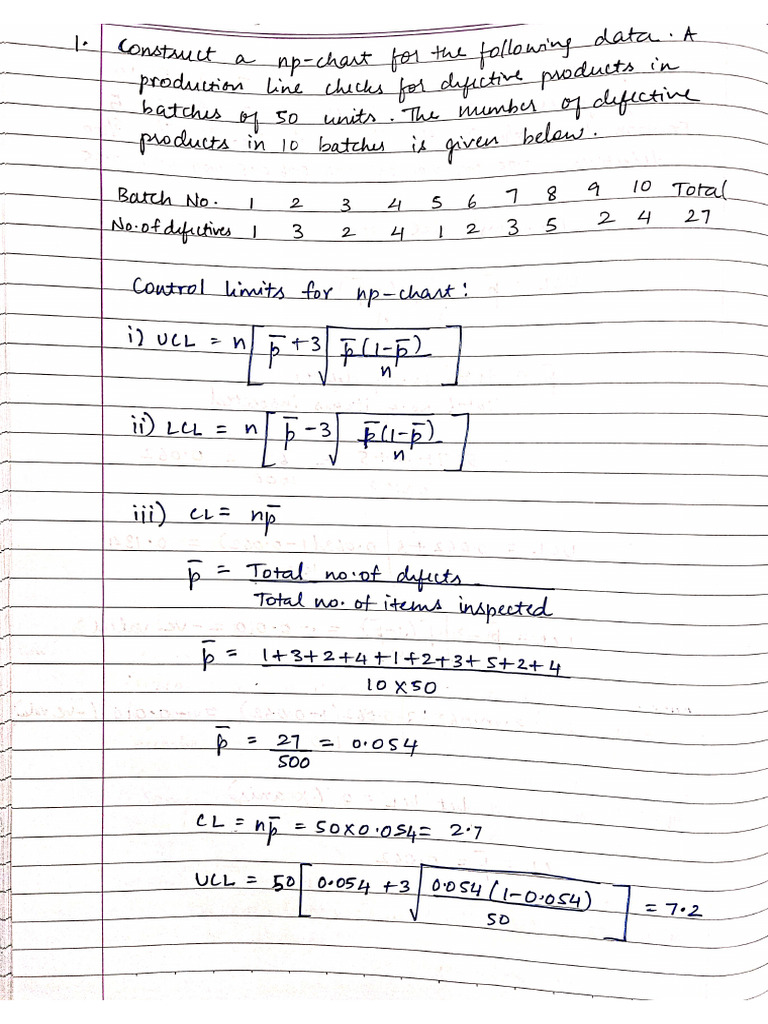 1. Construct a np-chart for the following data. A
production line checks for defective products in
batches of 50 units. The number of defective
products in 10 batches is given below.
Batch No. 1 2 3 4 5 6 7 8 9 10 Total
No. of defectives 1 3 2 4 1 2 3 5 2 4 27
Control limits for np-chart:
i) UCL = n[p̄ + 3√(p̄(1-p̄)/n)]
ii) LCL = n[p̄ - 3√(p̄(1-p̄)/n)]
iii) CL = np̄
p̄ = Total no. of defects
Total no. of items inspected
p̄ = 1+3+2+4+1+2+3+5+2+4
10 X 50
p̄ = 27/500 = 0.054
CL = np̄ = 50X0.054 = 2.7
UCL = 50[0.054 + 3√(0.054(1-0.054)/50)] = 7.2